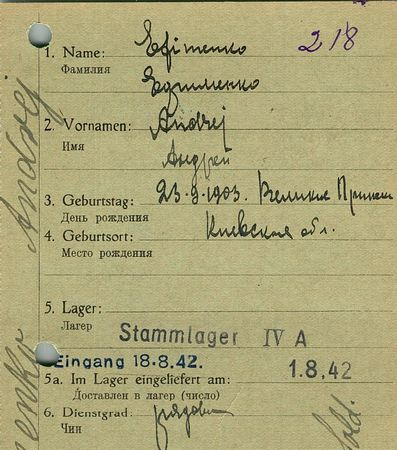 218
1. Name: Efimenko
Фамилия
Ефименко
2. Vornamen: Andrej
Имя
Андрей
3. Geburtstag: 23.9.1903. Великие
День рождения
4. Geburtsort: Киевская обл.
Место рождения
5. Lager:
Лагер
Stammlager IV A
Eingang 18.8.42.
1.8.42
5a. Im Lager eingeliefert am:
Доставлен в лагер (число)
6. Dienstgrad: рядовой
Чин
Andrej
enko
Sold.